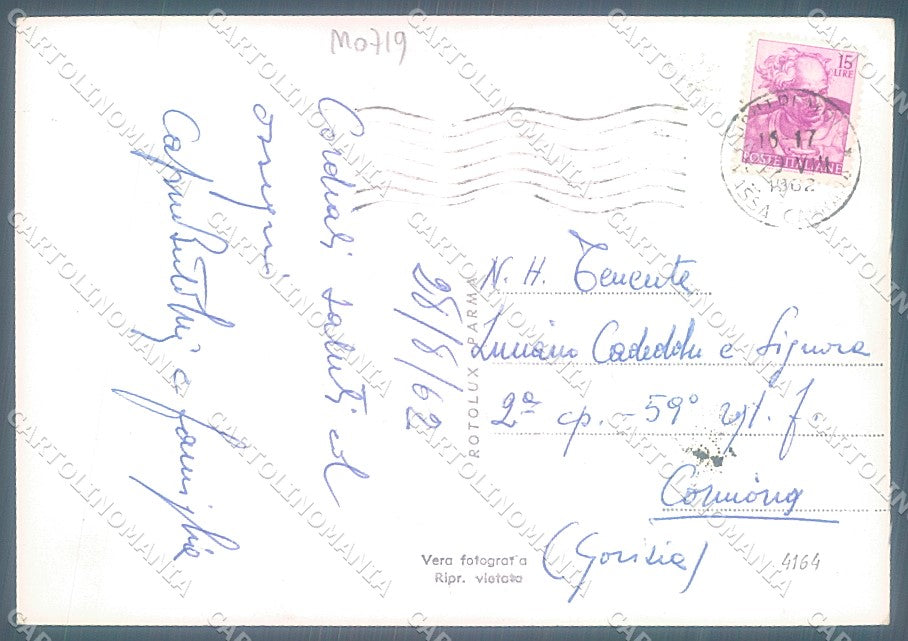 Mo719
15
LIRE
POSTE ITALIANE
16-17
1962
Cordiali saluti ed
ossequi
e famiglia
28/8/62
ROTOLUX PARMA
N. H. Tenente
Luciano Cadeddu e Signora
2ª cp. - 59° rgt. f.
Cormòns
(Gorizia)
Vera fotografia
Ripr. vietata
4164
CARTOLINOMANIA